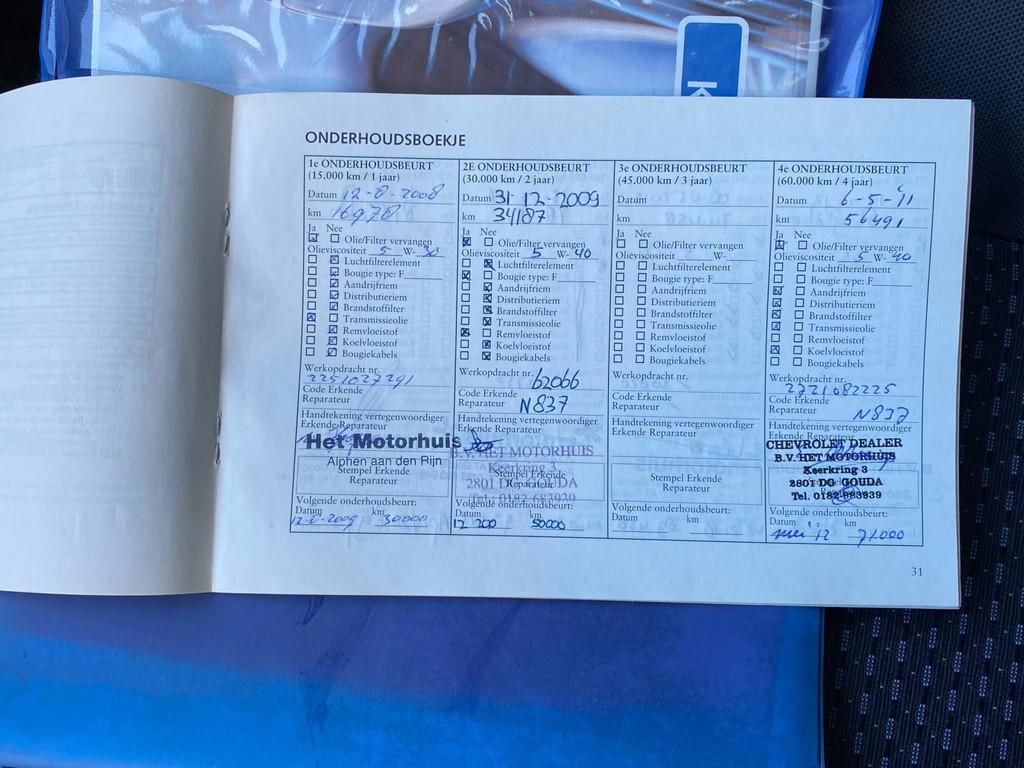 ONDERHOUDSBOEKJE
1e ONDERHOUDSBEURT
(15.000 km / 1 jaar)
Datum 12-8-2008
km 16978
Ja Nee
Olie/Filter vervangen
Olieviscositeit 5 W- 30
Luchtfilterelement
Bougie type: F
Aandrijfriem
Distributieriem
Brandstoffilter
Transmissieolie
Remvloeistof
Koelvloeistof
Bougiekabels
Werkopdracht nr.
2251027291
Code Erkende
Reparateur
Handtekening vertegenwoordiger
Erkende Reparateur
Het Motorhuis
Alphen aan den Rijn
Stempel Erkende
Reparateur
Volgende onderhoudsbeurt:
Datum km
12-8-2009 30000
2E ONDERHOUDSBEURT
(30.000 km / 2 jaar)
Datum 31-12-2009
km 34187
Ja Nee
Olie/Filter vervangen
Olieviscositeit 5 W- 40
Luchtfilterelement
Bougie type: F
Aandrijfriem
Distributieriem
Brandstoffilter
Transmissieolie
Remvloeistof
Koelvloeistof
Bougiekabels
Werkopdracht nr.
62066
Code Erkende
Reparateur N837
Handtekening vertegenwoordiger
Erkende Reparateur
B.V. HET MOTORHUIS
Keerkring 3
2801 DG GOUDA
Tel. 0182-683939
Stempel Erkende
Reparateur
Volgende onderhoudsbeurt:
Datum km
12 50000
3e ONDERHOUDSBEURT
(45.000 km / 3 jaar)
Datum
km
Ja Nee
Olie/Filter vervangen
Olieviscositeit W-
Luchtfilterelement
Bougie type: F
Aandrijfriem
Distributieriem
Brandstoffilter
Transmissieolie
Remvloeistof
Koelvloeistof
Bougiekabels
Werkopdracht nr.
Code Erkende
Reparateur
Handtekening vertegenwoordiger
Erkende Reparateur
Stempel Erkende
Reparateur
Volgende onderhoudsbeurt:
Datum km
4e ONDERHOUDSBEURT
(60.000 km / 4 jaar)
Datum 6-5-11
km 56491
Ja Nee
Olie/Filter vervangen
Olieviscositeit 5 W- 40
Luchtfilterelement
Bougie type: F
Aandrijfriem
Distributieriem
Brandstoffilter
Transmissieolie
Remvloeistof
Koelvloeistof
Bougiekabels
Werkopdracht nr.
2721082225
Code Erkende
Reparateur N837
Handtekening vertegenwoordiger
Erkende Reparateur
CHEVROLET DEALER
B.V. HET MOTORHUIS
Keerkring 3
2801 DG GOUDA
Tel. 0182-683939
Stempel Erkende
Reparateur
Volgende onderhoudsbeurt:
Datum km
mei 12 71000
31